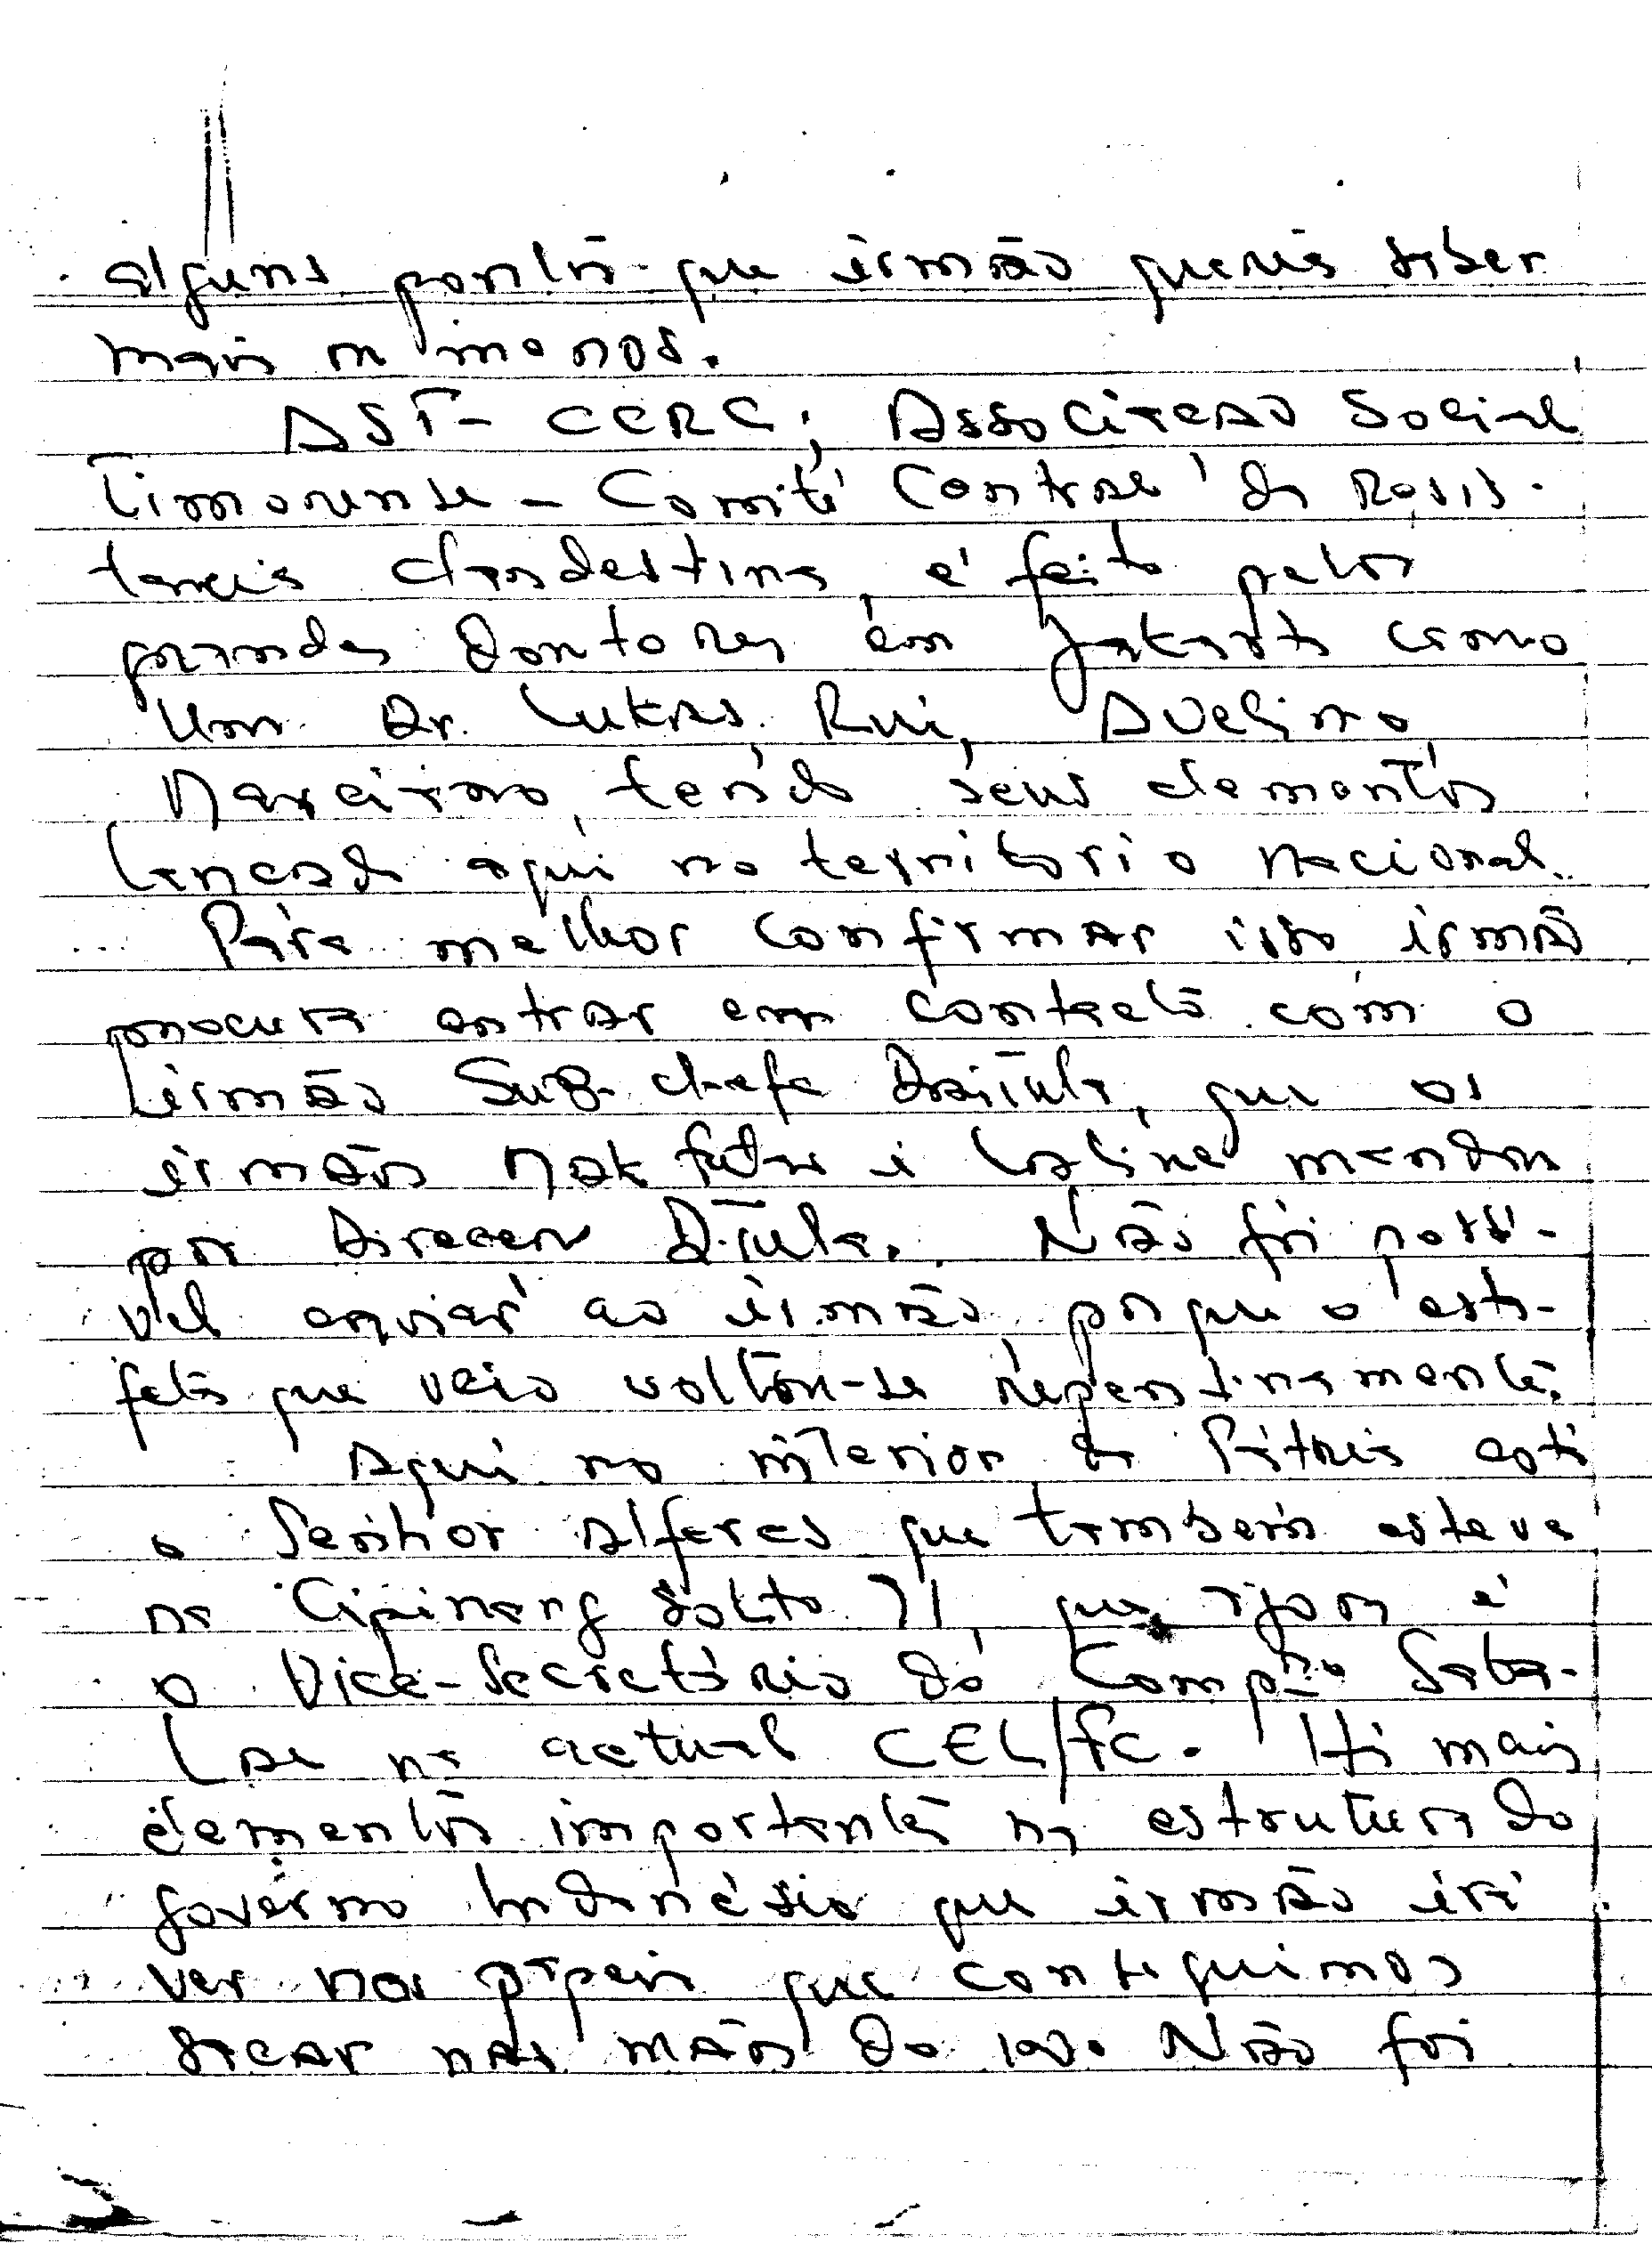 alguns pontos que irmão queria saber
mais ou menos.
AST-CCRC; Associacão Social
Timorense - Comité Central da Resis-
tencia clandestina, é feito pelos
grandes Doutores em Jakarta como
Um Dr. Lukas. Rui, Avelino,
Marciano, tendo seus elementos
lancado aqui no territorio nacional.
Para melhor confirmar isso irmão
procura entrar em contacto com o
irmão Sub-chefe que os
irmãos Mak e mandou
por Não foi possi-
vel enviar ao irmão porque o esta-
feta que veio voltou-se repentinamente.
Aqui no interior da Pátria está
o Senhor Alferes que tambem esteve
na Cipinang que agora é
o Vice-Secretário do Compº
na actual CEL/FC. Há mais
elementos importantes na estrutura do
governo Indonésio que irmão irá
ver nos papeis que conseguimos
sacar nas mãos do Não foi